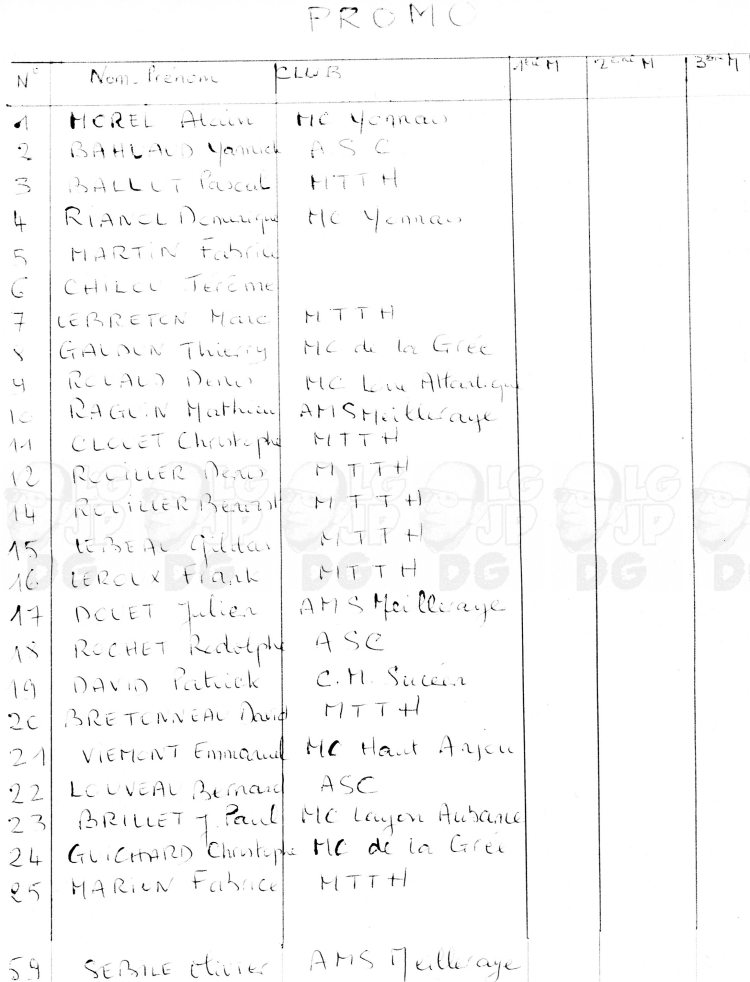 PROMO
N° Nom-Prénom CLUB 1ère M 2ème M 3ème M
1 MOREL Alain MC Yonnais
2 BAHUAUD Yannick ASC
3 Pascal MTTH
4 Dominique MC Yonnais
5 MARTIN Fabrice
6 Jérôme
7 LEBRETON Marc MTTH
8 Thierry MC de la Grée
9 Denis MC Loire Atlantique
10 RAGUIN Mathieu AMS Meilleraye
11 CLOUET Christophe MTTH
12 ROUILLER Denis MTTH
14 ROUILLER Benoist MTTH
15 LEBEAU Gildas MTTH
16 LEROUX Frank MTTH
17 DOUET Julien AMS Meilleraye
18 ROCHET Rodolphe ASC
19 DAVID Patrick C.M. Sucéen
20 BRETONNEAU David MTTH
21 VIEMONT Emmanuel MC Haut Anjou
22 LOUVEAU Bernard ASC
23 BRILLET J. Paul MC Layon Aubance
24 GUICHARD Christophe MC de la Grée
25 MARION Fabrice MTTH
59 SEBILE Olivier AMS Meilleraye
LG JP DG
LG JP DG
LG JP DG
LG JP DG
LG JP DG